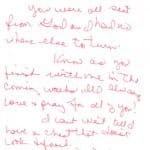 You were all sent
from God as I had no
where else to turn.
Know as you
finish with me in the
coming weeks I'll always
love & pray for all of you.
I can't wait til I
have a chest that doesn't
look deformed.